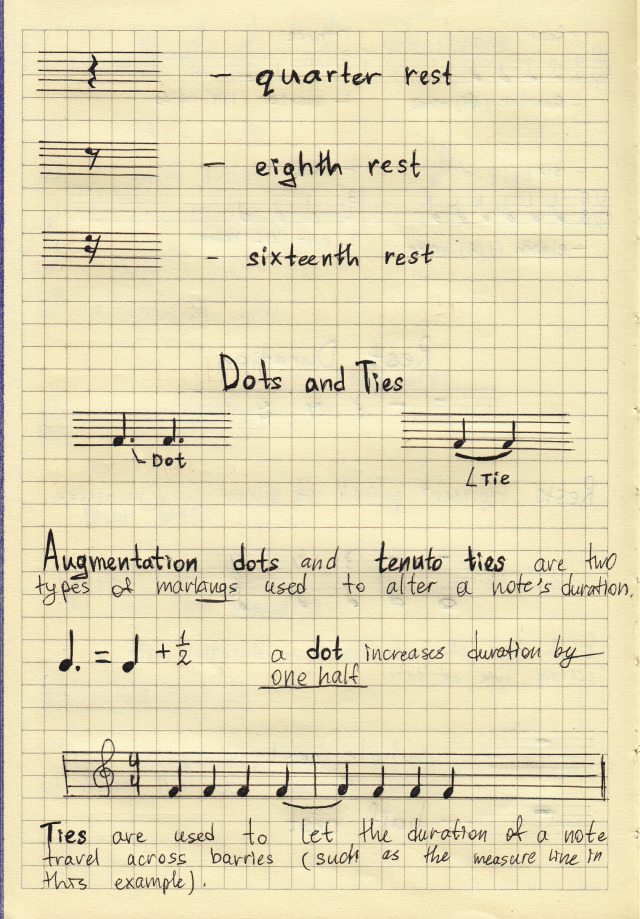 - quarter rest
- eighth rest
- sixteenth rest
Dots and Ties
Dot
Tie
Augmentation dots and tenuto ties are two
types of markangs used to alter a note's duration.
= + 1/2
a dot increases duration by
one half
4
4
Ties are used to let the duration of a note
travel across barries (such as the measure line in
this example).